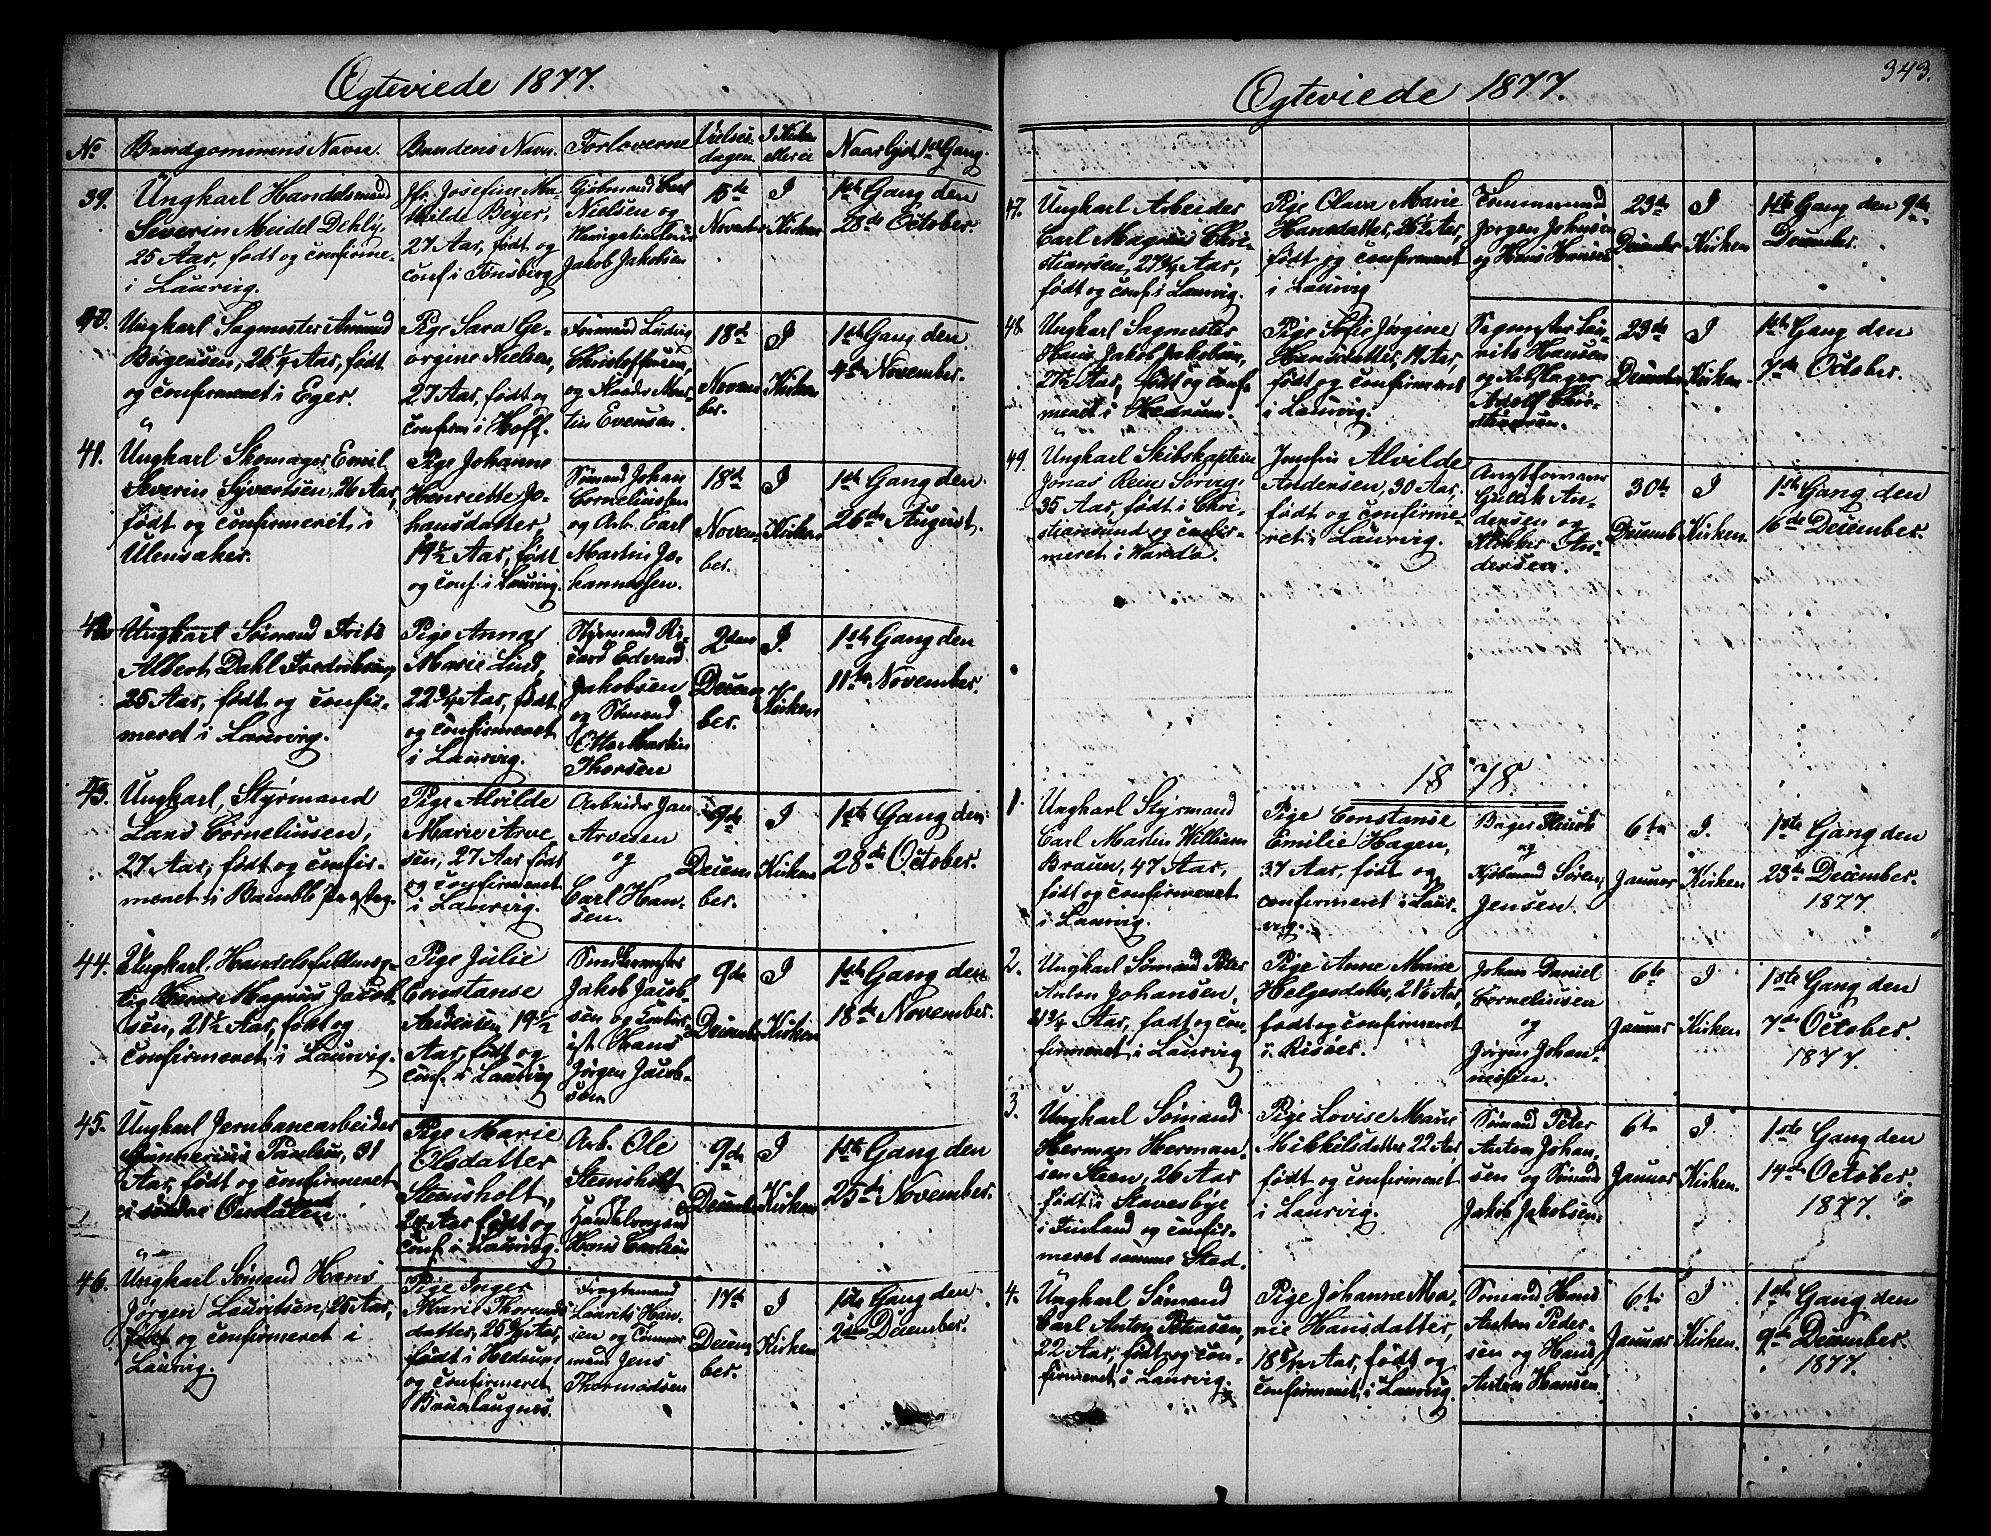 Ægteviede 1877.
No
Brudgommens Navn.
Brudens Navn.
Forloverne
Vielses-
dagen.
I Kirken
eller ei
Naar lyst 1ste Gang.
39.
Ungkarl Handelsmand
Severin Meidel Dehly,
25 Aar, født og confirme-
i Laurvig.
Jfr. Josefine Ma-
thilde Beyer,
27 Aar, født og
conf. i Tønsberg
Kjøbmand Carl
Nielsen og
Navigationlærer
Jakob Jakobsen
15de
November
I
Kirken
1ste Gang den
28de October.
40.
Ungkarl Sagmester Amund
Børgensen, 26 1/4 Aar, født
og confirmeret i Eger.
Pige Sara Ge-
orgine Nielsen,
27 Aar, født og
confirm i Hoff.
Ludvig
Christoffersen,
og Mar-
tin Evensen.
18de
Novem-
ber.
I
Kirken
1ste Gang den
4de November.
41.
Ungkarl Skomager Emil
Severin Syvertsen, 26 Aar,
født og confirmeret, i
Ullensaker.
Pige Johanne
Henriette Jo-
hansdatter
19 1/2 Aar, født
og conf. i Laurvig.
Sømand Johan
Corneliussen
og Arb. Carl
Martin Jo-
hannessen.
18de
Novem-
ber.
I
Kirken
1ste Gang den
26de August.
42
Ungkarl Sømand Frits
Albert Dahl Fredriksen,
25 Aar, født og confir-
meret i Laurvig.
Pige Anna
Marie Lind,
22 3/4 Aar, født,
og confirmeret
i Laurvig.
Styrmand Ri-
card Edvard
Jakobsen
og Sømand
Otto Martin
Thorsen
2den
Decem-
ber.
I.
Kirken
1ste Gang den
11te November.
43.
Ungkarl, Styrmand
Lars Corneliusen,
27 Aar, født og confir-
meret i Bamble Præsteg.
Pige Alvilde
Marie Arve
sen, 27 Aar født
og confirmeret
i Laurvig.
Arbeider Jan
Arvesen
og
Carl Han-
sen.
9de
Decem
ber.
I
Kirken
1ste Gang den
28de October.
44.
Ungkarl, Handelsfuldmæg-
tig Hans Magnus Jacob-
sen, 21 1/2 Aar, født og
confirmeret i Laurvig.
Pige Julie
Constanse
Andersen, 19 1/2
Aar, født og
conf. i Laurvig
Jakob Jacob-
sen og Contor-
ist Hans
Jørgen Jacob-
sen
9de
Decemb
I
Kirken
1ste Gang den
18de November.
45.
Ungkarl Jernbanearbeider
Gunnerius Paulsen, 31
Aar, født og confirmeret
i søndre Ourdalen.
Pige Marie
Olsdatter
Stemsholt,
24 Aar født og
conf. i Laurvig.
Arb. Ole
Stemsholt
Handelborgend
Hans Carlsen
9de
Decembe
I
Kirken
1ste Gang den
25de November.
46.
Ungkarl Sømand Hans
Jørgen Lauritsen, 25 Aar,
født og confirmeret i
Laurvig.
Pige Inger
Maril Thormods
datter, 25 3/4 Aar,
født i Hedrum
og confirmeret
Brunlaugnes.
Fragtemand
Laurits Han-
sen og Tømmer
mand Jens
Thormodsen
17de
Decem
ber.
I
Kirken
1ste Gang den
2den December.
Ægteviede 1877.
343.
47.
Ungkarl Arbeider
Carl Magnus Chri-
stiansen, 27 3/4 Aar,
født og conf. i Laurvig.
Pige Olava Marie
Hansdatter, 26 1/2 Aar,
født og confirmeret
i Laurvig
Tømmermand
Jørgen Johnsen
og Hans Hansen
23de
December
I
Kirken
1ste Gang den 9de
December.
48.
Ungkarl Sagmester
Hans Jakob Jakobsen,
27 1/2 Aar, født og confir
meret i Hedrum.
Pige Sofie Jørgine
Hansdatter, 19 Aar,
født og confirmeret
i Laurvig.
Sagmester Lau-
rits Hansen
og
Adolf Chri-
stiansen.
23de
December
I
Kirken
1ste Gang den
7de October.
49.
Ungkarl Skibskaptein
Jonas Rein Sørvig,
35 Aar, født i Chri-
stiansund og confir-
meret i Vardø.
Jomfru Alvilde
Andersen, 30 Aar,
født og confirme-
ret i Laurvig.
Gullik An-
dersen og
Klokker An-
dersen.
30te
Decemb
I
Kirken.
1ste Gang den
16de December.
1878
1.
Ungkarl Styrmand
Carl Martin William
Braun, 47 Aar,
født og confirmeret
i Laurvig.
Pige Constanse
Emilie Hagen,
37 Aar, født og
confirmeret i Laur-
vig.
Bager
og
Kjøbmand Søren
Jensen.
6te
Januar
I.
Kirken
1ste Gang den
23de December.
1877
2.
Ungkarl Sømand Peter
Anton Johansen,
21 3/4 Aar, født og con-
firmeret i Laurvig
Pige Anne Marie
Helgesdatter, 21 1/6 Aar,
født og confirmeret
i Risøer.
Johan Daniel
Corneliusen
og
Jørgen Johan-
nesen.
6te
Januar
I
Kirken
1ste Gang den
7de October
1877.
3.
Ungkarl Sømand
Herman Herman-
sen Steen, 26 Aar
født i Stavesbye
i Finland og confir-
meret samme Sted.
Pige Lovise Marie
Mikkilsdatter 22 Aar,
født og confirmeret
i Laurvig.
Sømand Peter
Anton Johan-
sen og Sømand
Jakob Jakobsen.
6te
Januar
I
Kirken.
1ste Gang den
14de October.
1877.
4.
Ungkarl Sømand
Carl Anton Petersen,
22 Aar, født og con-
firmeret i Laurvig.
Pige Johanne Ma-
rie Hansdatter,
18 5/12 Aar, født og
confirmeret, i Laurvig.
Sømand Hans
Anton Peder-
sen og Hans
Anton Hansen.
6te
Januar
I
Kirken.
1ste Gang den
9de December.
1877.